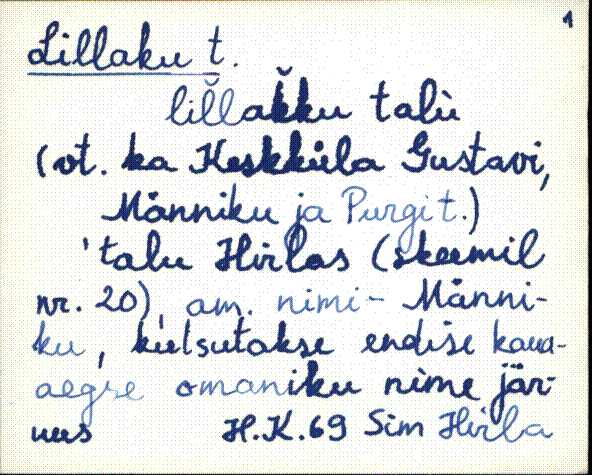 1
Lillaku t.
lil̆lak̆ku talù
(vt. ka Keskküla Gustavi,
Männiku ja Purgi t.)
'talu Hirlas (skeemil
nr. 20), am. nimi - Männi-
ku, kutsutakse endise kaua-
aegse omaniku nime jär-
H.K.69 Sim Hirla